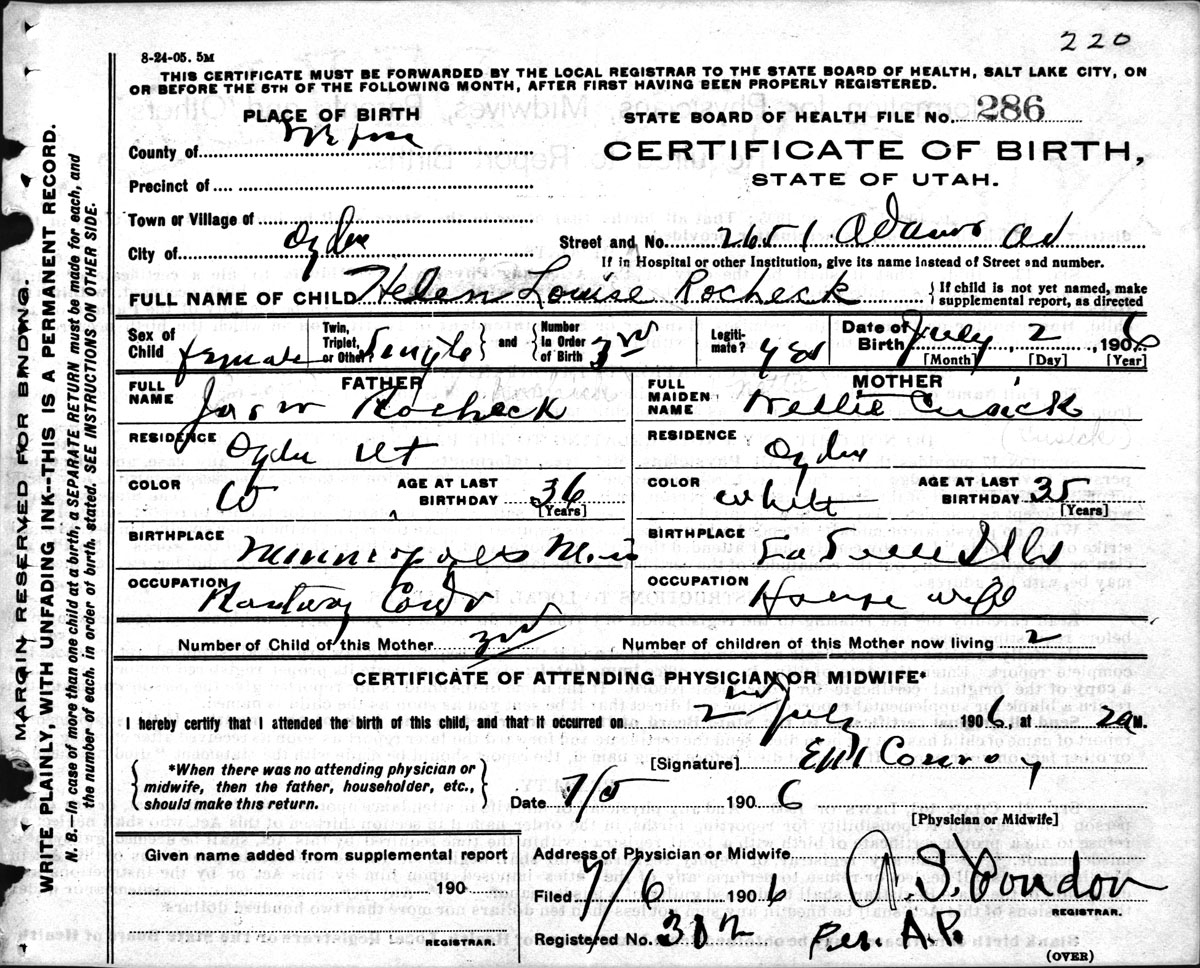 220
8-24-05. 5M
THIS CERTIFICATE MUST BE FORWARDED BY THE LOCAL REGISTRAR TO THE STATE BOARD OF HEALTH, SALT LAKE CITY, ON
OR BEFORE THE 5TH OF THE FOLLOWING MONTH, AFTER FIRST HAVING BEEN PROPERLY REGISTERED.
PLACE OF BIRTH
STATE BOARD OF HEALTH FILE No. 286
County of
CERTIFICATE OF BIRTH,
STATE OF UTAH.
Precinct of
Town or Village of
City of Ogden
Street and No. 2651 Adams Av
If in Hospital or other Institution, give its name instead of Street and number.
FULL NAME OF CHILD Helen Louise Rocheck
{If child is not yet named, make
supplemental report, as directed
Sex of Child female
Twin, Triplet, or Other? Single } and { Number In Order of Birth 3rd
Legiti-mate? yes
Date of Birth July, 2, 1906
[Month] [Day] [Year]
FATHER
MOTHER
FULL NAME Jas W Rocheck
FULL MAIDEN NAME Nellie Cusick
RESIDENCE Ogden Ut
RESIDENCE Ogden
COLOR W AGE AT LAST BIRTHDAY 36 [Years]
COLOR White AGE AT LAST BIRTHDAY 35 [Years]
BIRTHPLACE Minneapolis
BIRTHPLACE
OCCUPATION Railway Condr
OCCUPATION House wife
Number of Child of this Mother 3rd
Number of children of this Mother now living 2
CERTIFICATE OF ATTENDING PHYSICIAN OR MIDWIFE*
I hereby certify that I attended the birth of this child, and that it occurred on 2nd July 1906 at 2 a M.
{*When there was no attending physician or
midwife, then the father, householder, etc.,
should make this return.}
[Signature] Conroy
Date 7/5 1906
[Physician or Midwife]
Given name added from supplemental report
190
REGISTRAR.
Address of Physician or Midwife
Filed 7/6 1906
REGISTRAR.
Registered No. 302
Per. A.P.
(OVER)
MARGIN RESERVED FOR BINDING.
WRITE PLAINLY, WITH UNFADING INK--THIS IS A PERMANENT RECORD.
N. B.—In case of more than one child at a birth, a SEPARATE RETURN must be made for each, and
the number of each, in order of birth, stated. SEE INSTRUCTIONS ON OTHER SIDE.